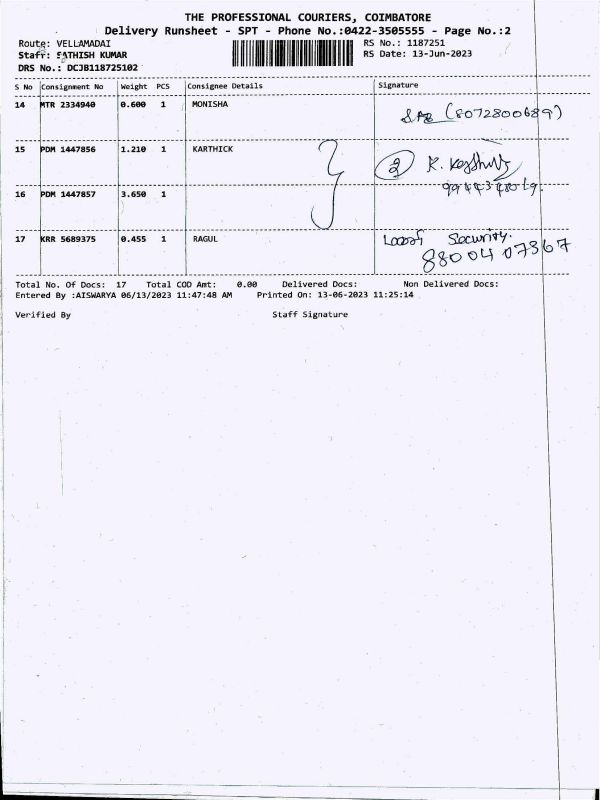 THE PROFESSIONAL COURIERS, COIMBATORE
Delivery Runsheet - SPT - Phone No.:0422-3505555 - Page No.:2
Route: VELLAMADAI RS No.: 1187251
Staff: SATHISH KUMAR RS Date: 13-Jun-2023
DRS No.: DCJB118725102
S No Consignment No Weight PCS Consignee Details Signature
14 MTR 2334940 0.600 1 MONISHA
(8072800689)
15 PDM 1447856 1.210 1 KARTHICK 2 K.
16 PDM 1447857 3.650 1
17 KRR 5689375 0.455 1 RAGUL Security.
8800407367
Total No. Of Docs: 17 Total COD Amt: 0.00 Delivered Docs: Non Delivered Docs:
Entered By :AISWARYA 06/13/2023 11:47:48 AM Printed On: 13-06-2023 11:25:14
Verified By Staff Signature